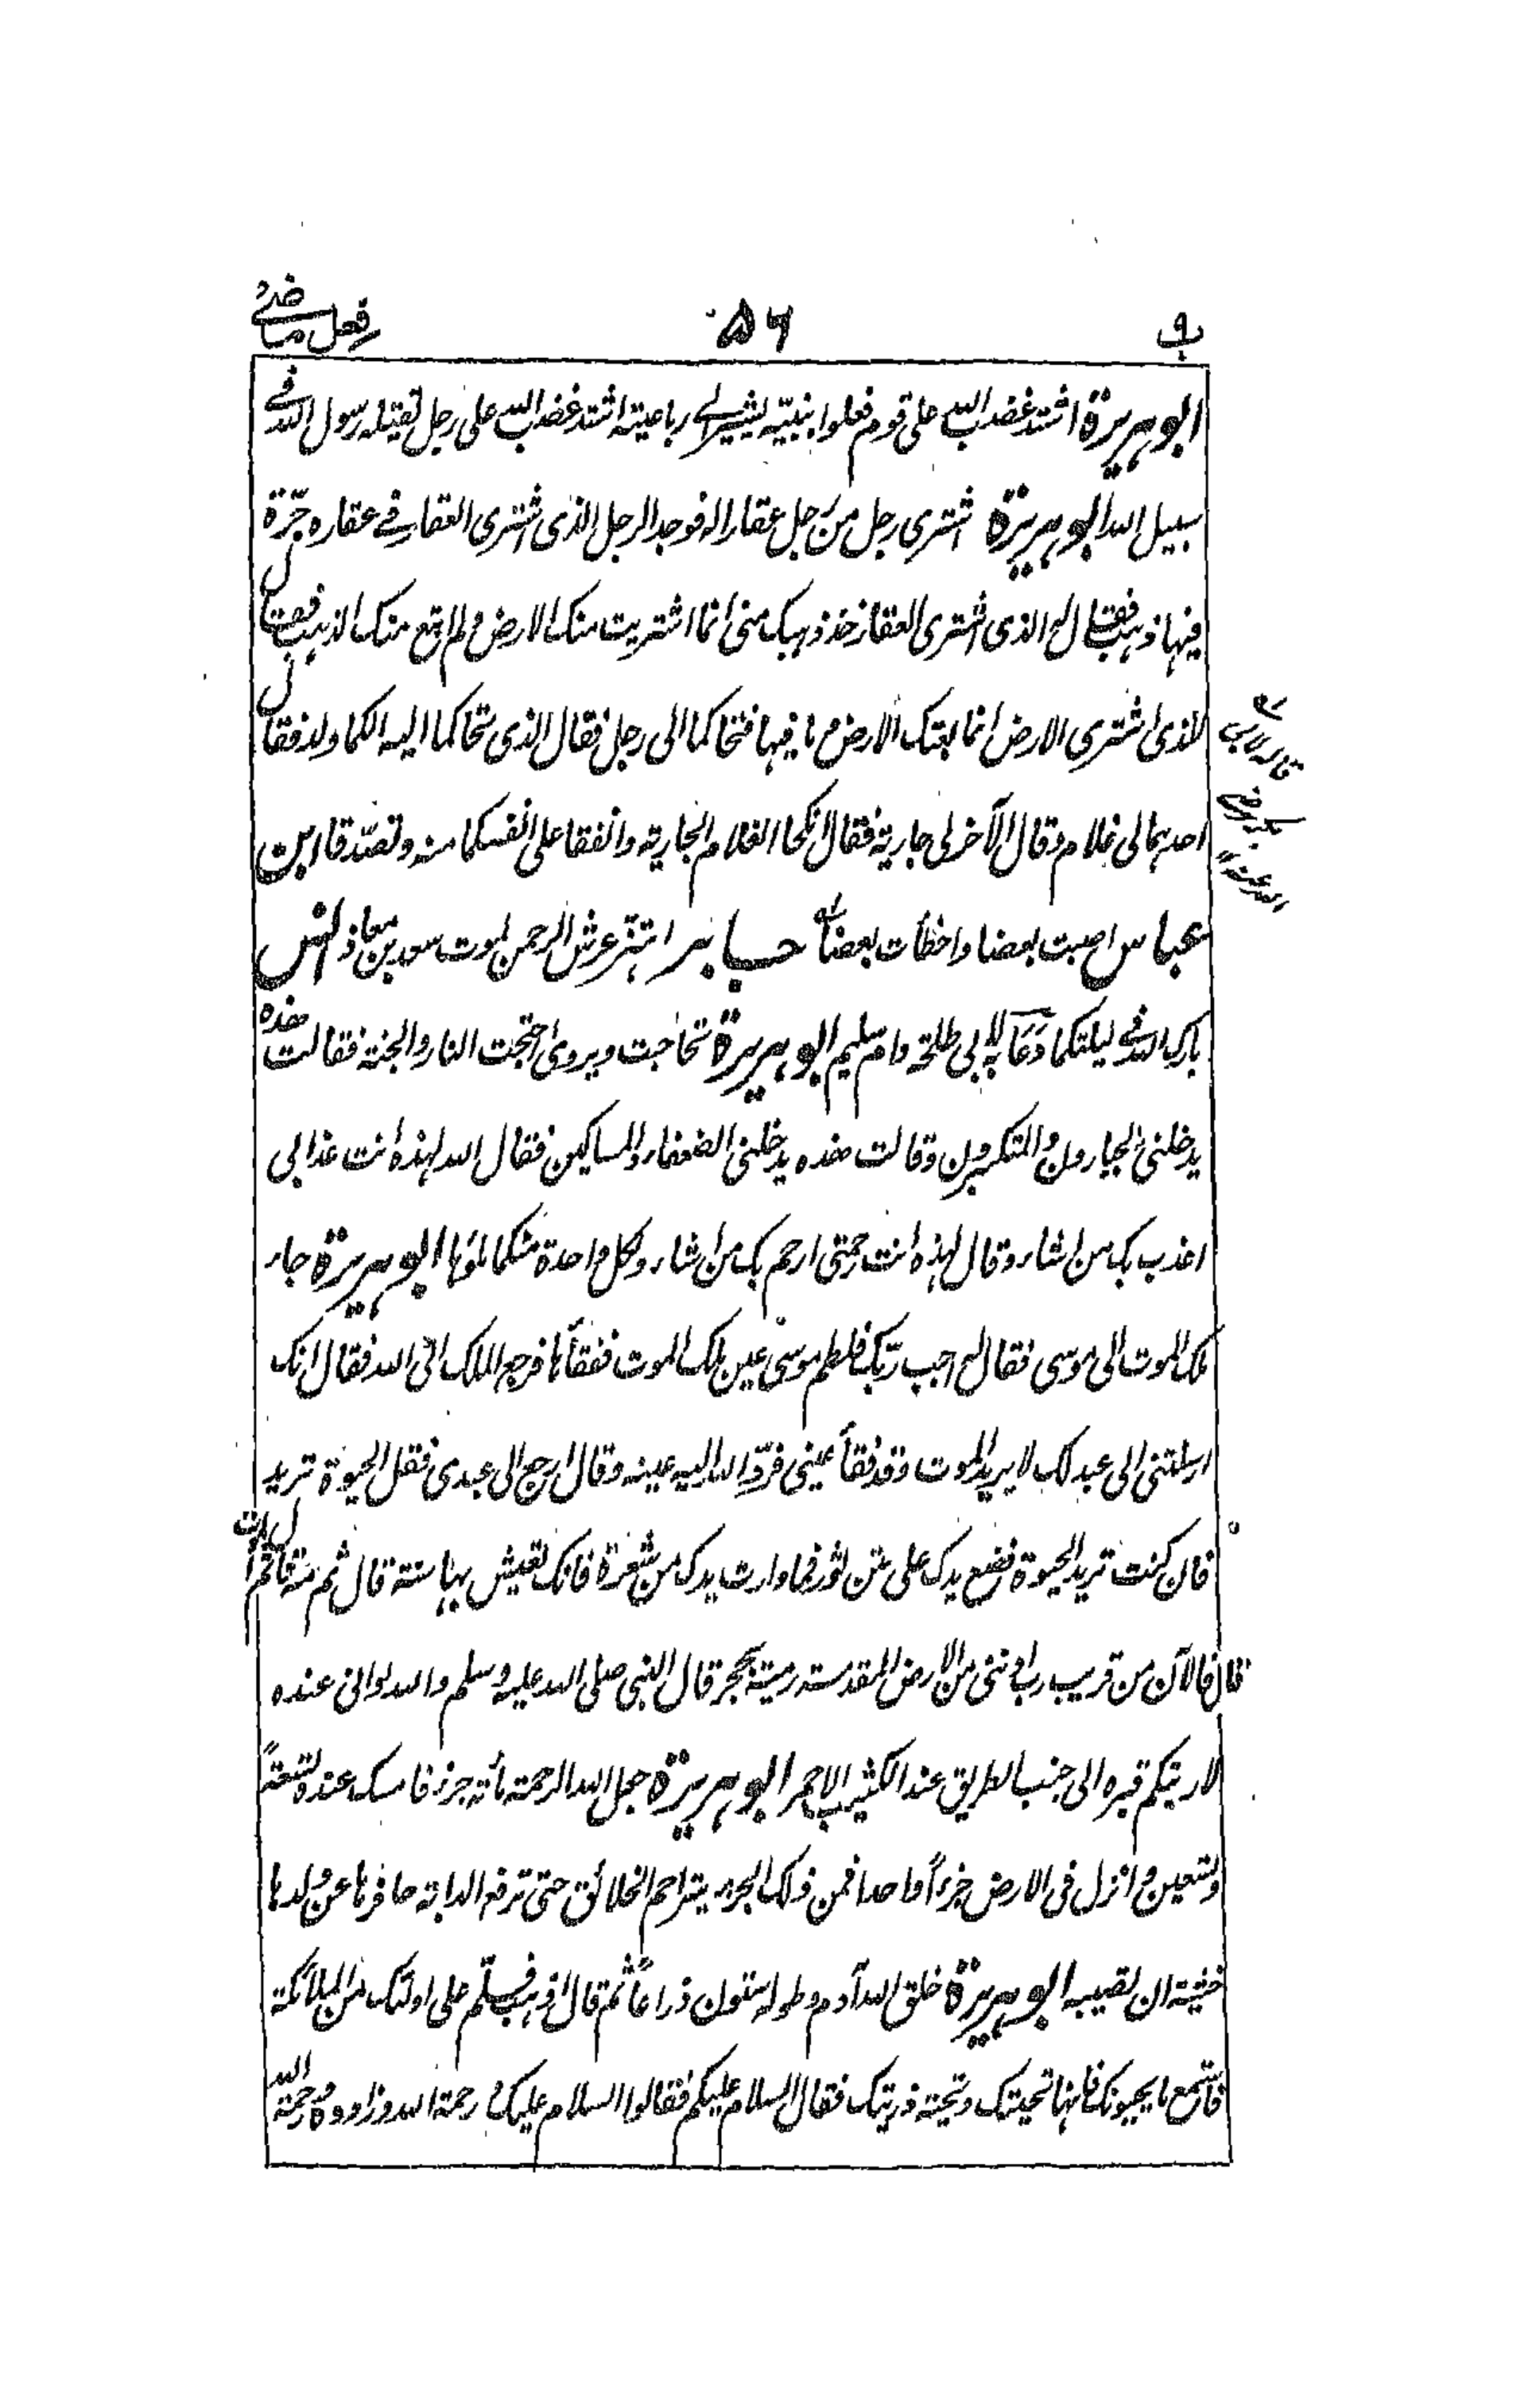 ب ٩ ٥٦ فعل ماضی
ابو هريرة اشتد غضب الله على قوم فعلوا بنبيّه يشير الى رباعيته اشتد غضب الله على رجل يقتله رسول الله فى
سبيل الله ابو هريرة اشترى رجل من رجل عقارا له فوجد الرجل الذى اشترى العقار فى عقاره جرّة
فيها ذهب فقال له الذى اشترى العقار خذ ذهبك منى انما اشتريت منك الارض ولم ابتع منك الذهب فقال
الذى اشترى الارض انما بعتك الارض وما فيها فتحاكما الى رجل فقال الذى تحاكما اليه الكما ولد فقال
احدهما لى غلام وقال الآخر لى جارية فقال انكحا الغلام الجارية وانفقا على انفسكما منه وتصدّقا ابن
عباس اصبت بعضا واخطأت بعضاً جابر اهتزّ عرش الرحمن لموت سعد بن معاذ انس
قاله لابى
بكر رضى
الله عنه
بارك الله فى ليلتكما دعا به لابى طلحة وام سليم ابو هريرة تحاجت ويروى احتجت النار والجنة فقالت هذه
يدخلنى الجبارون والمتكبرون وقالت هذه يدخلنى الضعفاء والمساكين فقال الله لهذه انت عذابى
اعذب بك من اشاء وقال لهذه انت رحمتى ارحم بك من اشاء ولكل واحدة منكما ملؤها ابو هريرة جاء
ملك الموت الى موسى فقال له اجب ربّك فلطم موسى عين ملك الموت ففقأها فرجع الملك الى الله فقال انك
ارسلتنى الى عبد لك لا يريد الموت وقد فقأ عينى فردّ الله اليه عينه وقال ارجع الى عبدى فقل الحيوة تريد
فان كنت تريد الحيوة فضع يدك على متن ثور فما وارت يدك من شعرة فانك تعيش بها سنة قال ثم مه قال ثم تموت
قال فالآن من قريب رب ادننى من الارض المقدسة رمية بحجر قال النبى صلى الله عليه وسلم والله لو انى عنده
لاريتكم قبره الى جنب الطريق عند الكثيب الاحمر ابو هريرة جعل الله الرحمة مأته جزء فامسك عنده تسعةً
وتسعين وانزل فى الارض جزءاً واحدا فمن ذلك الجزء يتراحم الخلائق حتى ترفع الدابة حافرها عن ولدها
خشية ان تصيبه ابو هريرة خلق الله آدم وطوله ستون ذراعاً ثم قال اذهب فسلّم على اولئك من الملائكة
فاستمع ما يحيونك فانها تحيتك وتحية ذريتك فقال السلام عليكم فقالوا السلام عليك ورحمة الله وزادوه ورحمة الله